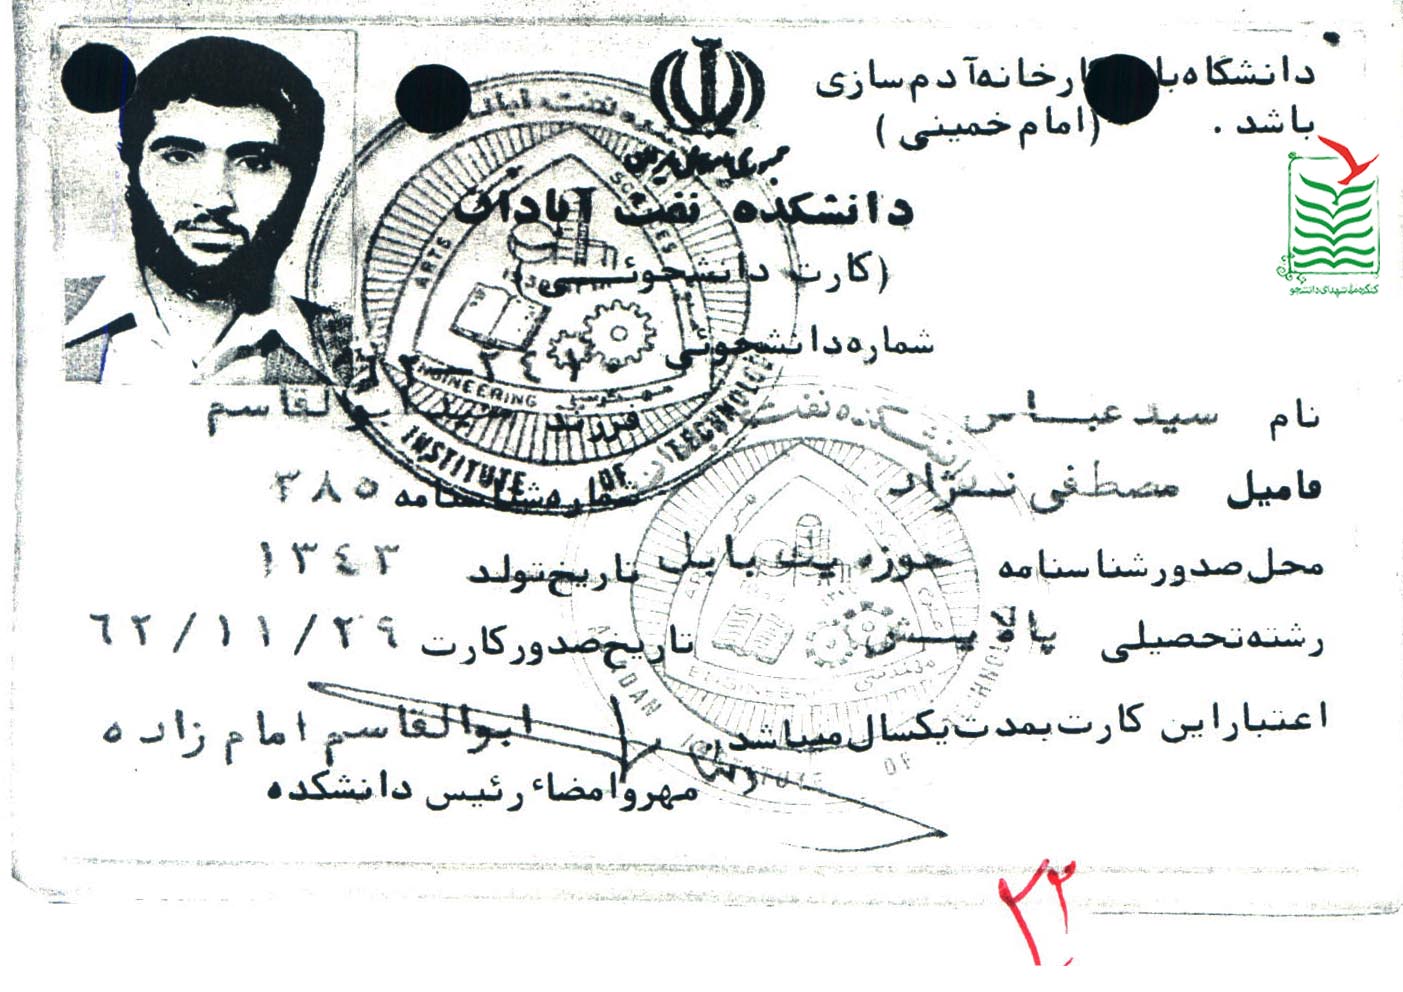 دانشگاه با ارخانه آدم سازی
باشد . (امام خمینی)
جمهوری اسلامی ایران
دانشکده نفت آبادان
(کارت دانشجوئی)
شماره دانشجوئی
نام سید عباس فرزند سید ابوالقاسم
فامیل مصطفی نژاد شماره شناسنامه ۳۸۵
محل صدور شناسنامه حوزه یک بابل تاریخ تولد ۱۳۴۳
رشته تحصیلی پالایش تاریخ صدور کارت ۶۲/۱۱/۲۹
اعتبار این کارت بمدت یکسال میباشد. ابوالقاسم امام زاده
مهر و امضاء رئیس دانشکده
ARTS SCIENCES
ENGINEERING مهندسی
INSTITUTE OF TECHNOLOGY
دانشکده نفت
ENGINEERING مهندسی
ABADAN INSTITUTE OF TECHNOLOGY
کنگره ملی شهدای دانشجو
۲۲